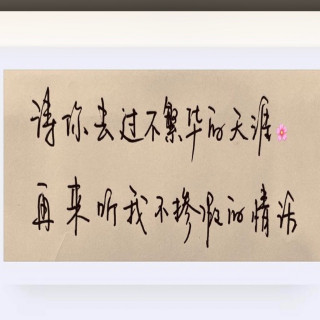 请你去过不繁华的天涯
再来听我不掺假的情话